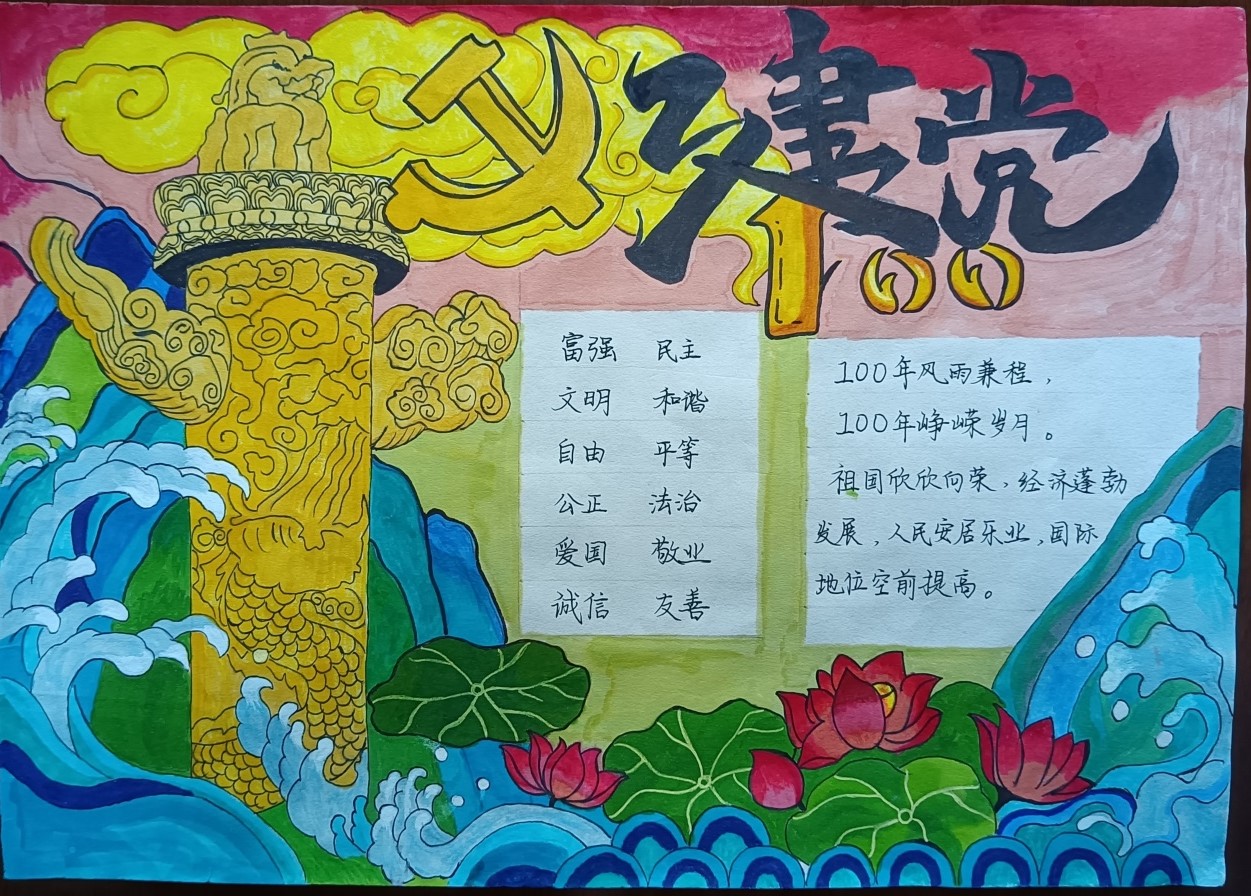 建党
100
富强 民主
文明 和谐
自由 平等
公正 法治
爱国 敬业
诚信 友善
100年风雨兼程，
100年峥嵘岁月。
祖国欣欣向荣，经济蓬勃
发展，人民安居乐业，国际
地位空前提高。